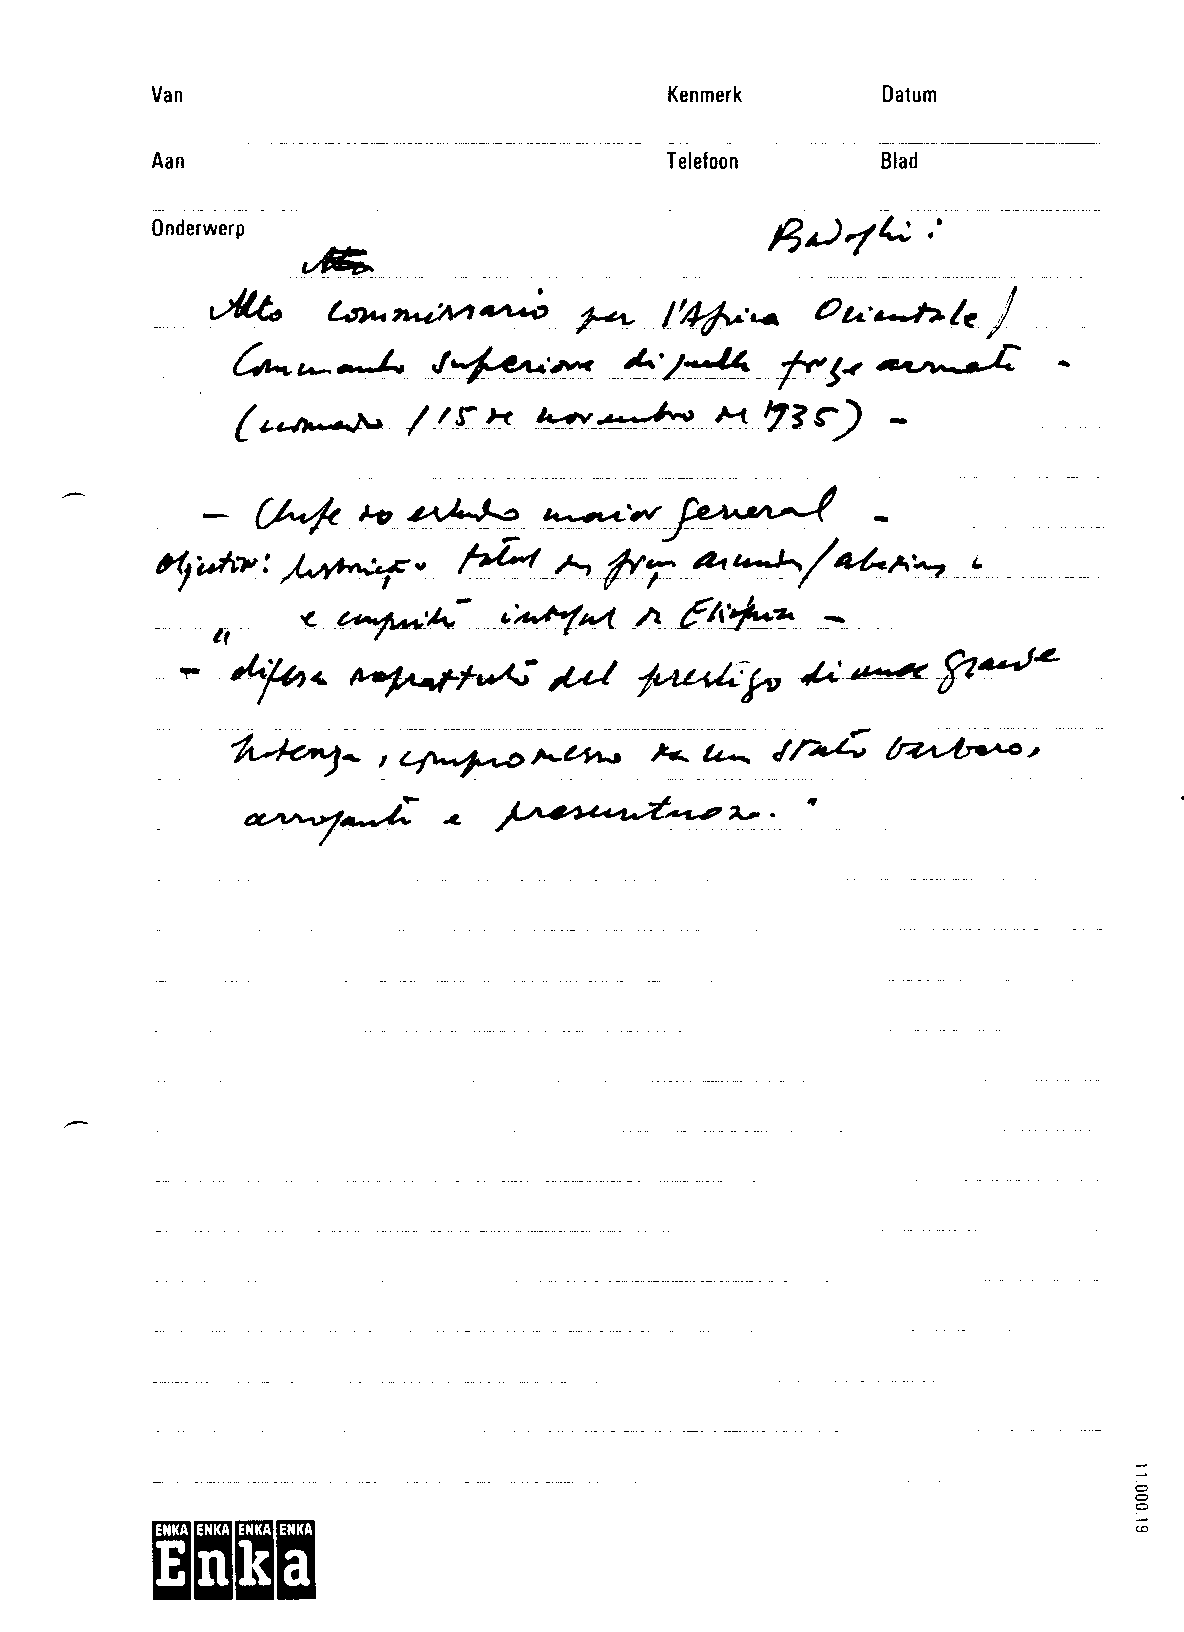 Van Kenmerk Datum
Aan Telefoon Blad
Onderwerp
Badoglio :
Alto
Alto Commissario per l'Africa Orientale /
Commando Superiore di quelle forze armate -
(nomeado / 15 de novembro de 1935) -
- Chefe do estado maior general -
Objectivo: destruição total das forças armadas / abexins
e conquista integral da Etiópia -
- "difesa soprattutto del prestigo di una grande
Potenza, compromesso da un stato barbaro,
arrogante e presuntuoso."
11.000.19
ENKA ENKA ENKA ENKA
Enka